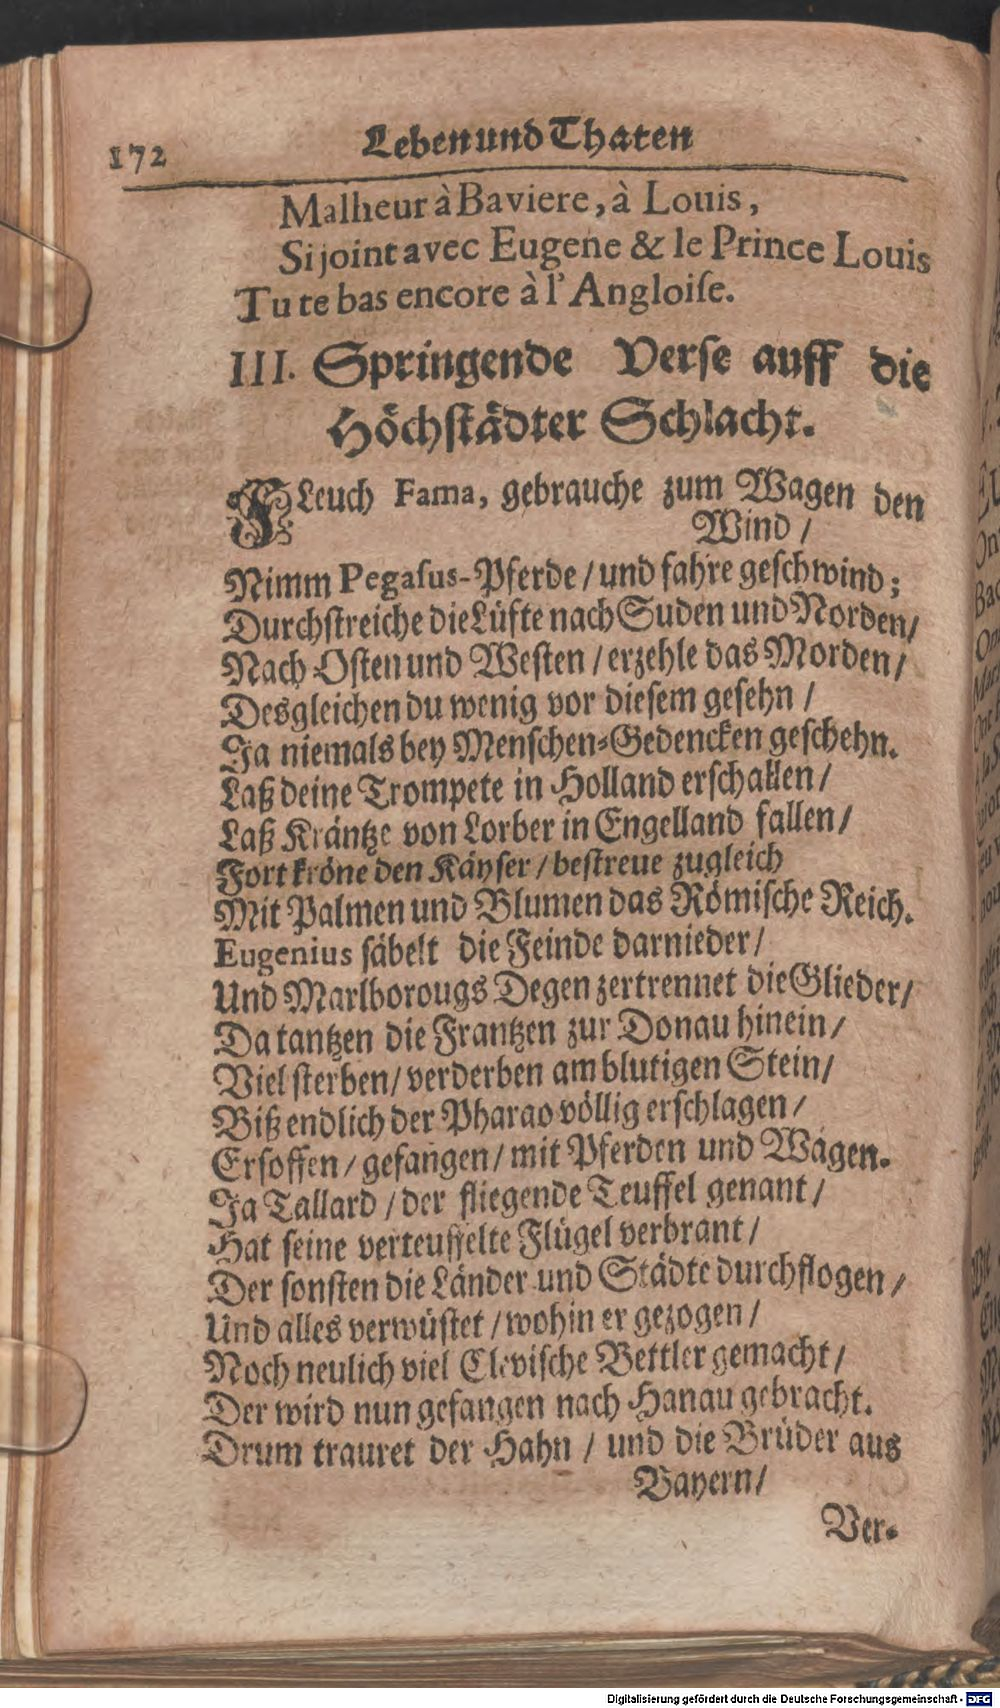 172
Leben und Thaten
Malheur à Baviere, à Louis,
Si joint avec Eugene & le Prince Louis
Tu te bas encore à l'Angloiſe.
III. Springende Verſe auff die
Höchſtädter Schlacht.
FLeuch Fama, gebrauche zum Wagen den
Wind /
Nimm Pegaſus-Pferde / und fahre geſchwind;
Durchſtreiche die Lüfte nach Suden und Norden /
Nach Oſten und Weſten / erzehle das Morden /
Desgleichen du wenig vor dieſem geſehn /
Ja niemals bey Menſchen-Gedencken geſchehn.
Laß deine Trompete in Holland erſchallen /
Laß Kräntze von Lorber in Engelland fallen /
Fort kröne den Käyſer / beſtreue zugleich
Mit Palmen und Blumen das Römiſche Reich.
Eugenius ſäbelt die Feinde darnieder /
Und Marlborougs Degen zertrennet die Glieder /
Da tantzen die Frantzen zur Donau hinein /
Viel ſterben / verderben am blutigen Stein /
Biß endlich der Pharao völlig erſchlagen /
Erſoffen / gefangen / mit Pferden und Wagen.
Ja Tallard / der fliegende Teuffel genant /
Hat ſeine verteuffelte Flügel verbrant /
Der ſonſten die Länder und Städte durchflogen /
Und alles verwüſtet / wohin er gezogen /
Noch neulich viel Cleviſche Bettler gemacht /
Der wird nun gefangen nach Hanau gebracht.
Drum trauret der Hahn / und die Brüder aus
Bayern /
Ver-
Digitalisierung gefördert durch die Deutsche Forschungsgemeinschaft - DFG